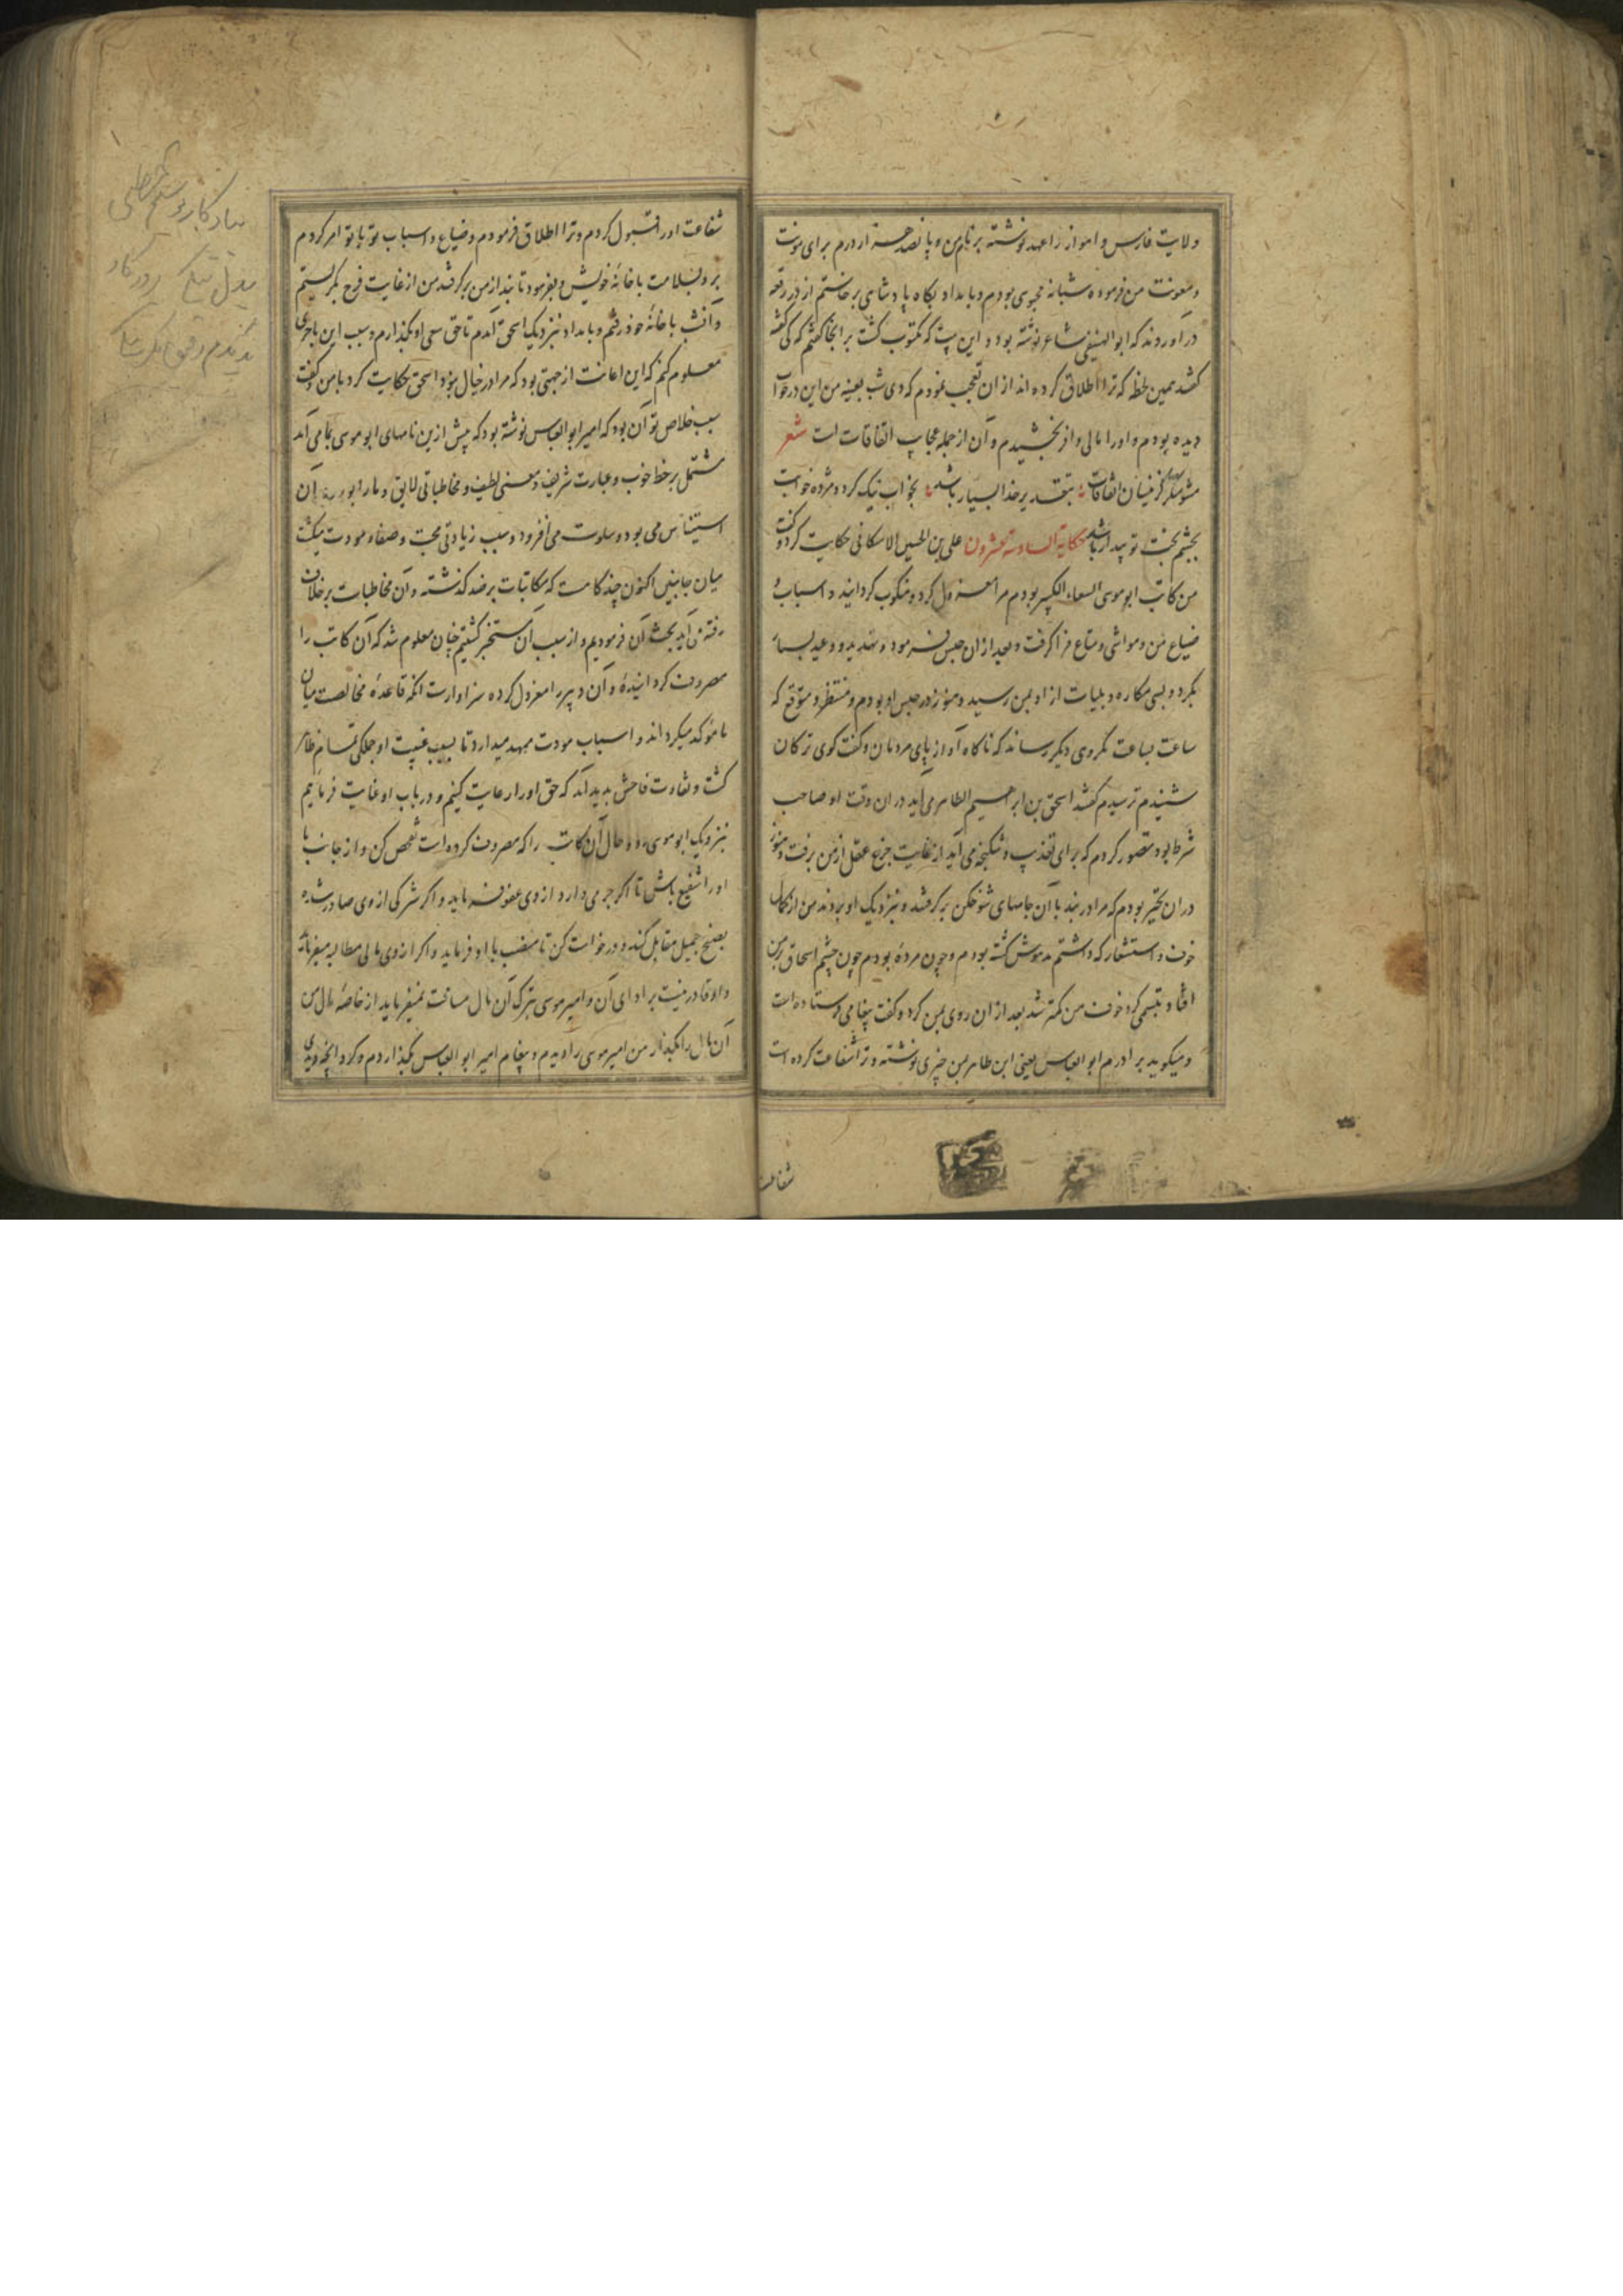 ولایت فارس و اهواز را عهد نوشته بر نام من و پانصد هزار درم برای مونت
و معونت من فرموده شبانه محبوس بودم و بامداد بکاه پادشاهی برخاستم از در رقعه
درآوردند که ابو شاعر نوشته بود و این بیت که مکتوب کشت برانجا کفتم که کی
کفتند همین لحظه که ترا اطلاق کرده‌اند از ان تعجب نمودم که دی شب بعینه من این در خواب
دیده بودم و او را مالی وافر بخشیدم و آن از جمله عجایب اتفاقات است شعر
مشو منکر کزینسان اتفاقات بتقدیر خدا بسیار باشد بخواب نیک کرد و مژده خوابت
بچشم بخت تو بیدار باشد حکایة السادسة عشرون علی بن الحسین الاسکافی حکایت کرد و کفت
من کاتب ابو موسی البغاء الکبیر بودم مرا معزول کرد و منکوب کردانید و اسباب و
ضیاع من و مواشی و متاع فرا کرفت و بعد از ان حبس فرمود و تهدید و وعید بسیار
بکرد و بسی مکاره و بلیات از او بمن رسید و هنوز در حبس او بودم و منتظر و متوقع که
ساعت بساعت مکروهی دیکر رساند که ناکاه آواز پای مردمان و کفت کوی ترکان
شنیدم ترسیدم کفتند اسحق بن ابراهیم الطاهر می‌آید در ان وقت او صاحب
شرط بود تصور کردم که برای تعذیب و شکنجه می‌آید از غایت جزع عقل از من برفت و هنوز
در ان تحیر بودم که مرا در بند با آن جامهای شوخکن برکرفتند و نزدیک او بردند من از کمال
خوف و استشعار که داشتم مدهوش کشته بودم و چون مردۀ بودم چون چشم اسحاق بر من
افتاد تبسمی کرد خوف من کمتر شد بعد از ان روی بمن کرد و کفت پیغامی فرستاده است
و میکوید برادرم ابو العباس یعنی ابن طاهر بمن چیزی نوشته و ترا شفاعت کرده است
شفاعت
شفاعت او را قبول کردم و ترا اطلاق فرمودم و ضیاع و اسباب تو با تو امر کردم
برو بسلامت با خانۀ خویش و بفرمود تا بند از من برکرفتند من از غایت فرح بکریستم
و آنشب با خانۀ خود رفتم و بامداد نزدیک اسحق آمدم تا حق سعی او بکذارم و سبب این ماجرای
معلوم کنم که این اعانت از جهتی بود که مرا در خیال نبود اسحق حکایت کرد با من و کفت
سبب خلاص تو آن بود که امیر ابو العباس نوشته بود که پیش ازین نامهای ابو موسی بما می‌آمد
مشتمل بر خط خوب و عبارت شریف و معنی لطیف و مخاطباتی لایق و ما را آن
استیناس می‌بود و سلوت می‌افزود و سبب زیادتی محبت و صفاء مودت میکشت
میان جانبین اکنون چند کاهست که مکاتبات بر ضد کذشته و آن مخاطبات بر خلاف
رفته می‌آید بحث آن فرمودیم و از سبب آن مستخبر کشتیم چنان معلوم شد که آن کاتب را
مصروف کردانیدۀ و آن دبیر را معزول کرده سزاوارست آنکه قاعدۀ مخالصت میان
ما موکد میکرداند و اسباب مودت ممهد میدارد تا بسبب غیبت او جملکی نقصان ظاهر
کشت و تفاوت فاحش پدید آمد که حق او را رعایت کنیم و در باب او عنایت فرماییم
نزدیک ابو موسی رو و حال آن کاتب را که مصروف کرده است تفحص کن و از جانب ما
او را شفیع باش تا اکر جرمی دارد از وی عفو فرماید و اکر شرکی از وی صادر شده
بصفح جمیل مقابل کند و درخواست کن تا منصب با او فرماید و اکر از وی مالی مطالبه میفرماید
و او قادر نیست بر ادای آن و امیر موسی بترک آن مال مسامحت نمیفرماید از خاصۀ مال من
آن مال را بکذار من امیر موسی را دیدم و پیغام امیر ابو العباس بکذاردم و کرد آنچه دیدی
یادکار